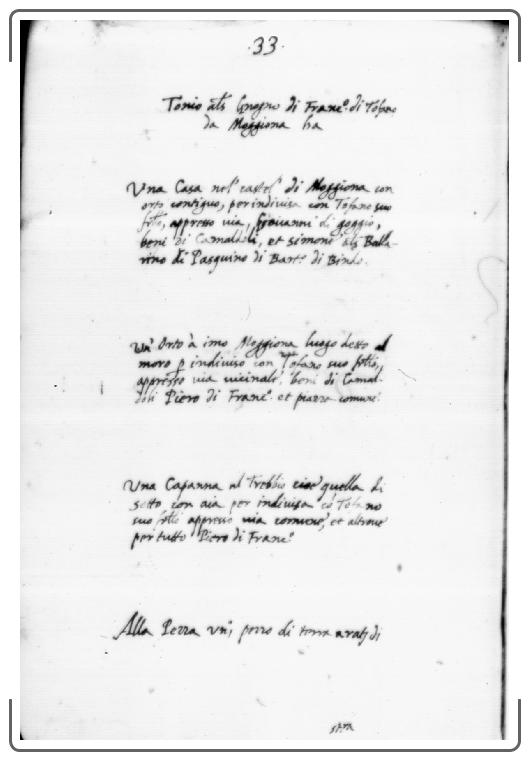 ·33·
Tonio als Gnogno di Franc.º di Tofano
da Moggiona ha
Una Casa nel castel di Moggiona con
orto contiguo, per indivisa con Tofano suo
frlo, appresso via, Giovanni di goggio,
beni di Camaldoli, et simone als Balla-
rino di Pasquino di Bart.º di Bindo.
Un' Orto à imo Moggiona luogo detto al
moro p indiviso con Tofano suo frllo,
appresso via vicinale, beni di Camal-
doli Piero di Franc.º et piazza comune.
Una Capanna al Trebbio cioe quella di
sotto con aia per indivisa cō Tofano
suo frllo appresso via comune, et altrove
per tutto Piero di Franc.º
Alla Pezza un pezzo di terra di